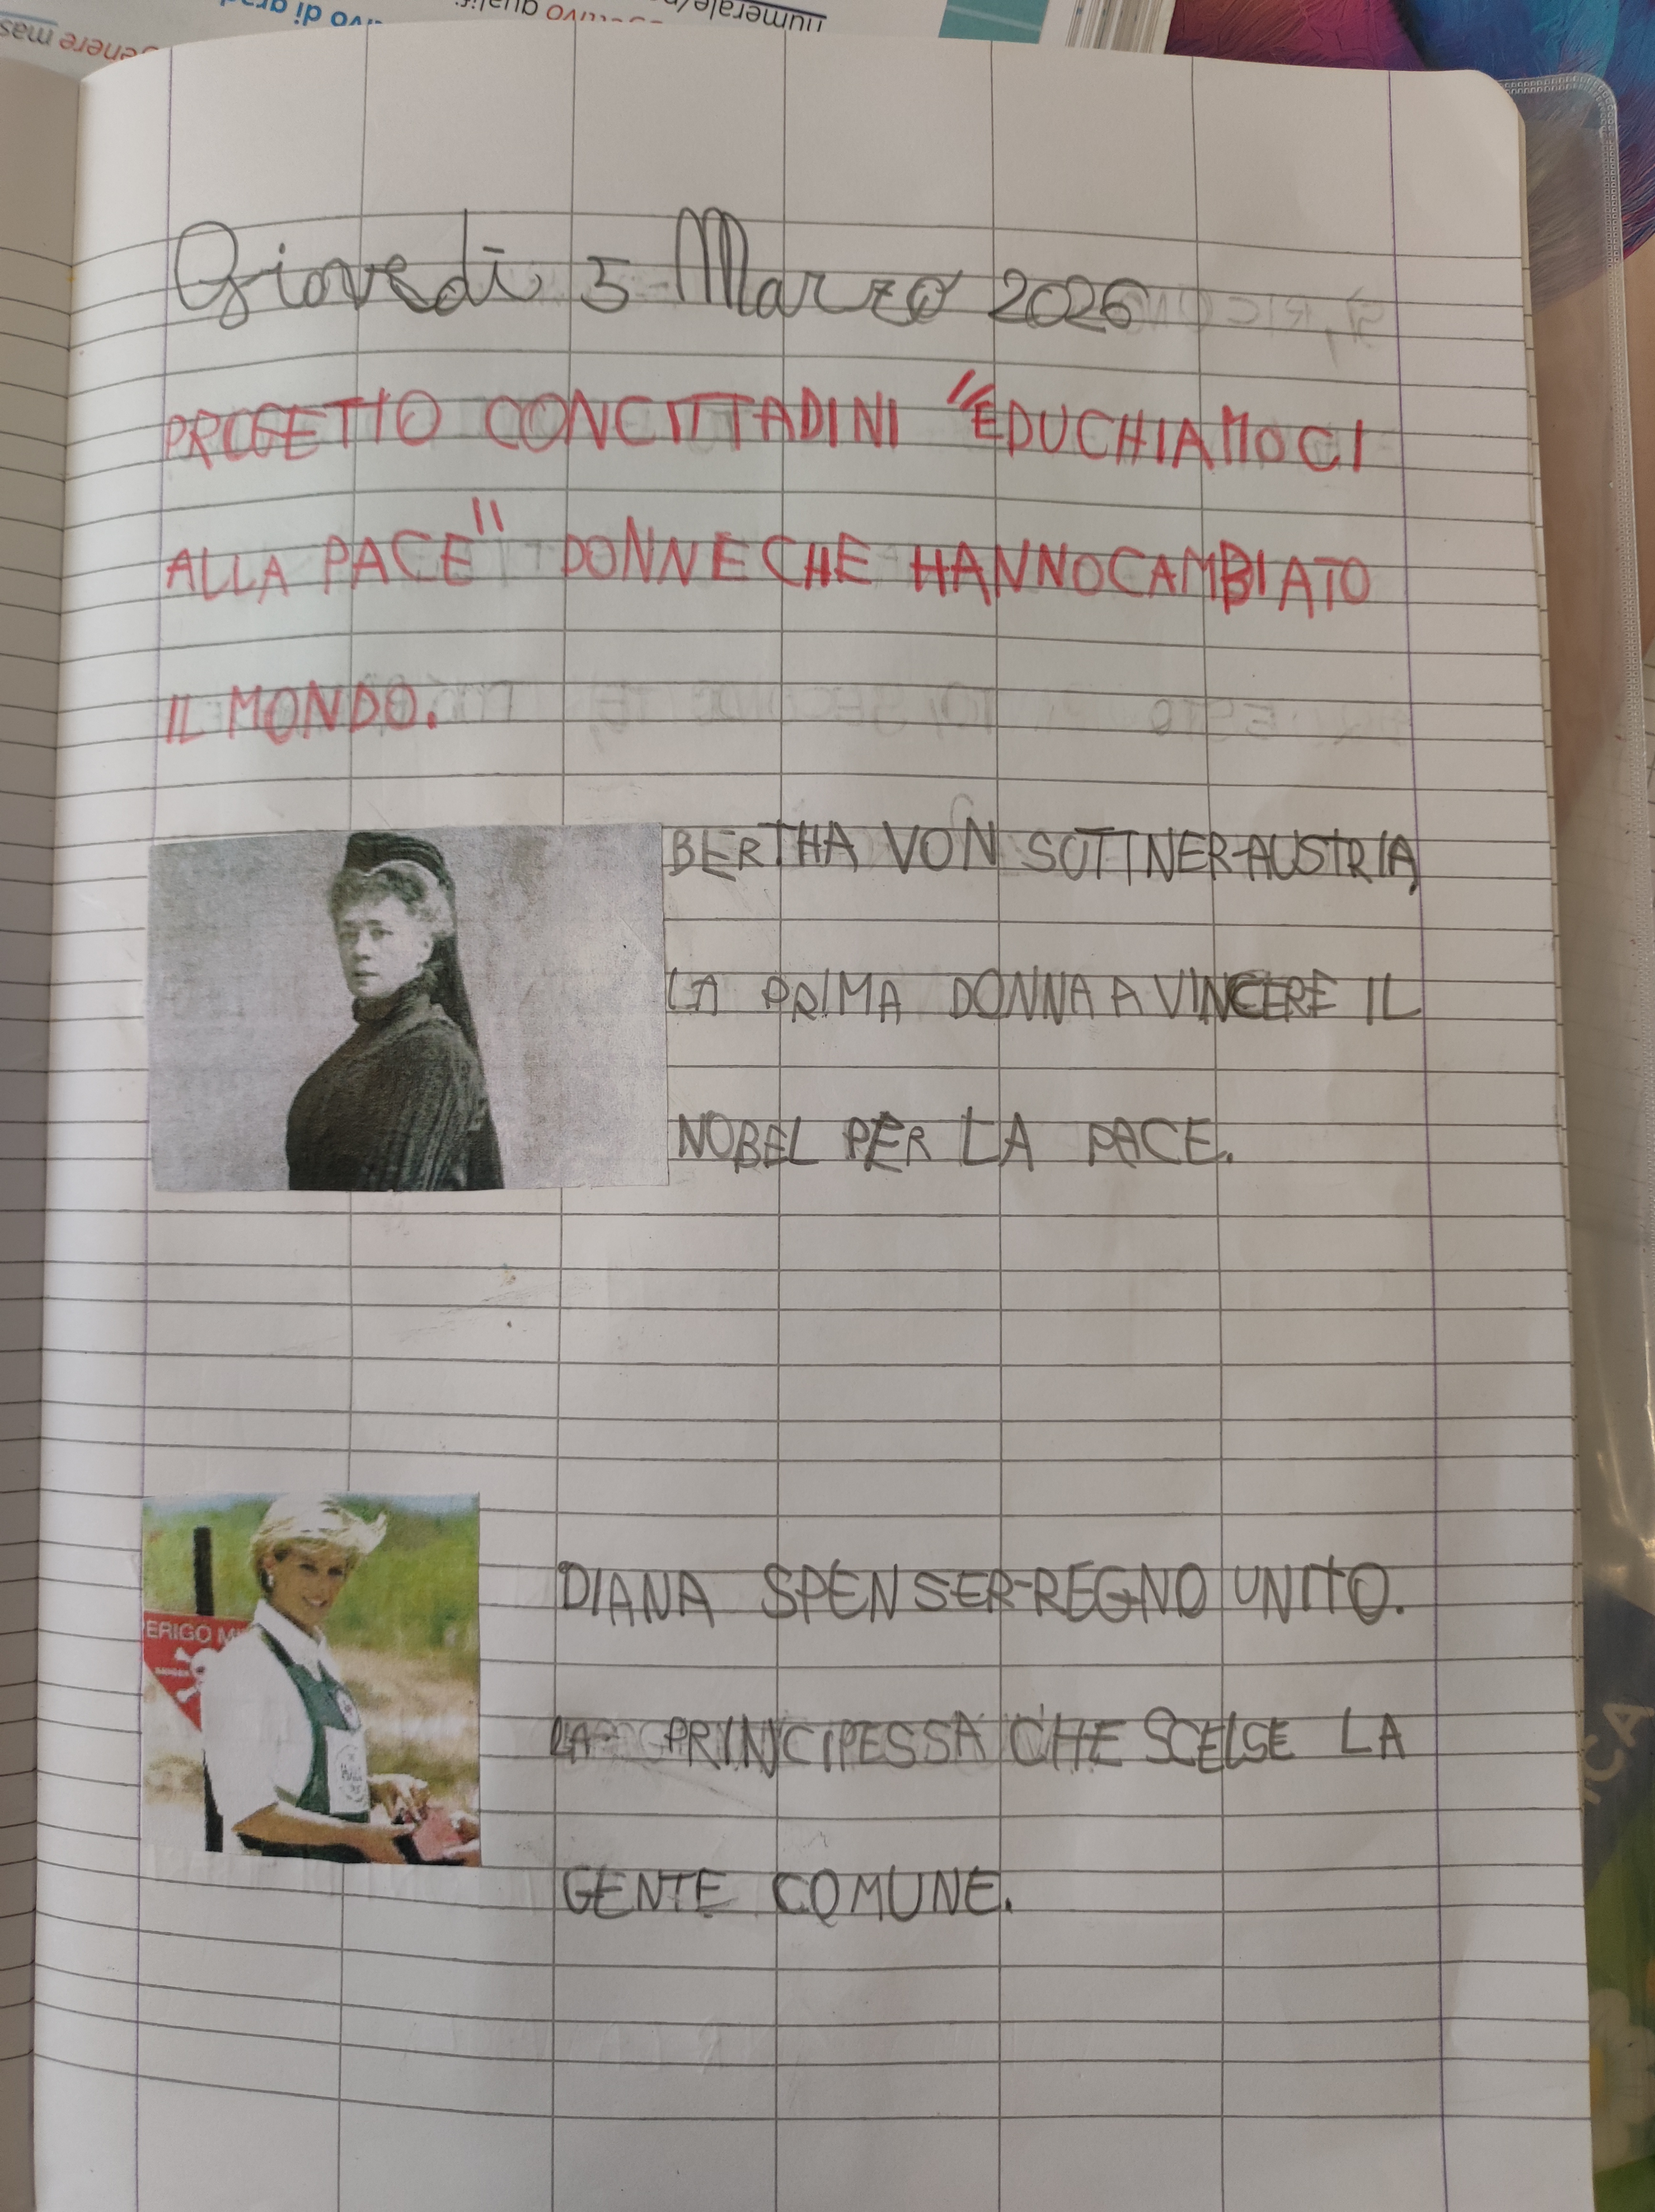 Giovedì 5 Marzo 2026
PROGETTO CONCITTADINI "EDUCHIAMOCI
ALLA PACE" DONNE CHE HANNO CAMBIATO
IL MONDO.
BERTHA VON SUTTNER-AUSTRIA
LA PRIMA DONNA A VINCERE IL
NOBEL PER LA PACE.
ERIGO M
DIANA SPENSER-REGNO UNITO.
LA PRINCIPESSA CHE SCELSE LA
GENTE COMUNE.